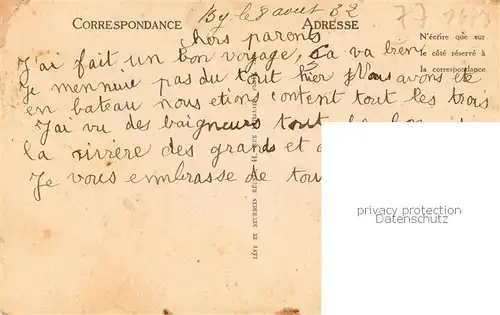 CORRESPONDANCE
ADRESSE
By le 8 aout 32
77
chers parents
N'écrire que sur
le côté réservé à
la correspondance
J'ai fait un bon voyage, Ça va bien
Je mennuie pas du tout hier Nous avons été
en bateau nous etions content tout les trois
J'ai vu des baigneurs tout
la rivière des grands et
Je vous embrasse de tou
LÉVY ET NEURDEIN RÉUNIS, 44, RUE LETELLIER, PARIS
privacy protection
Datenschutz